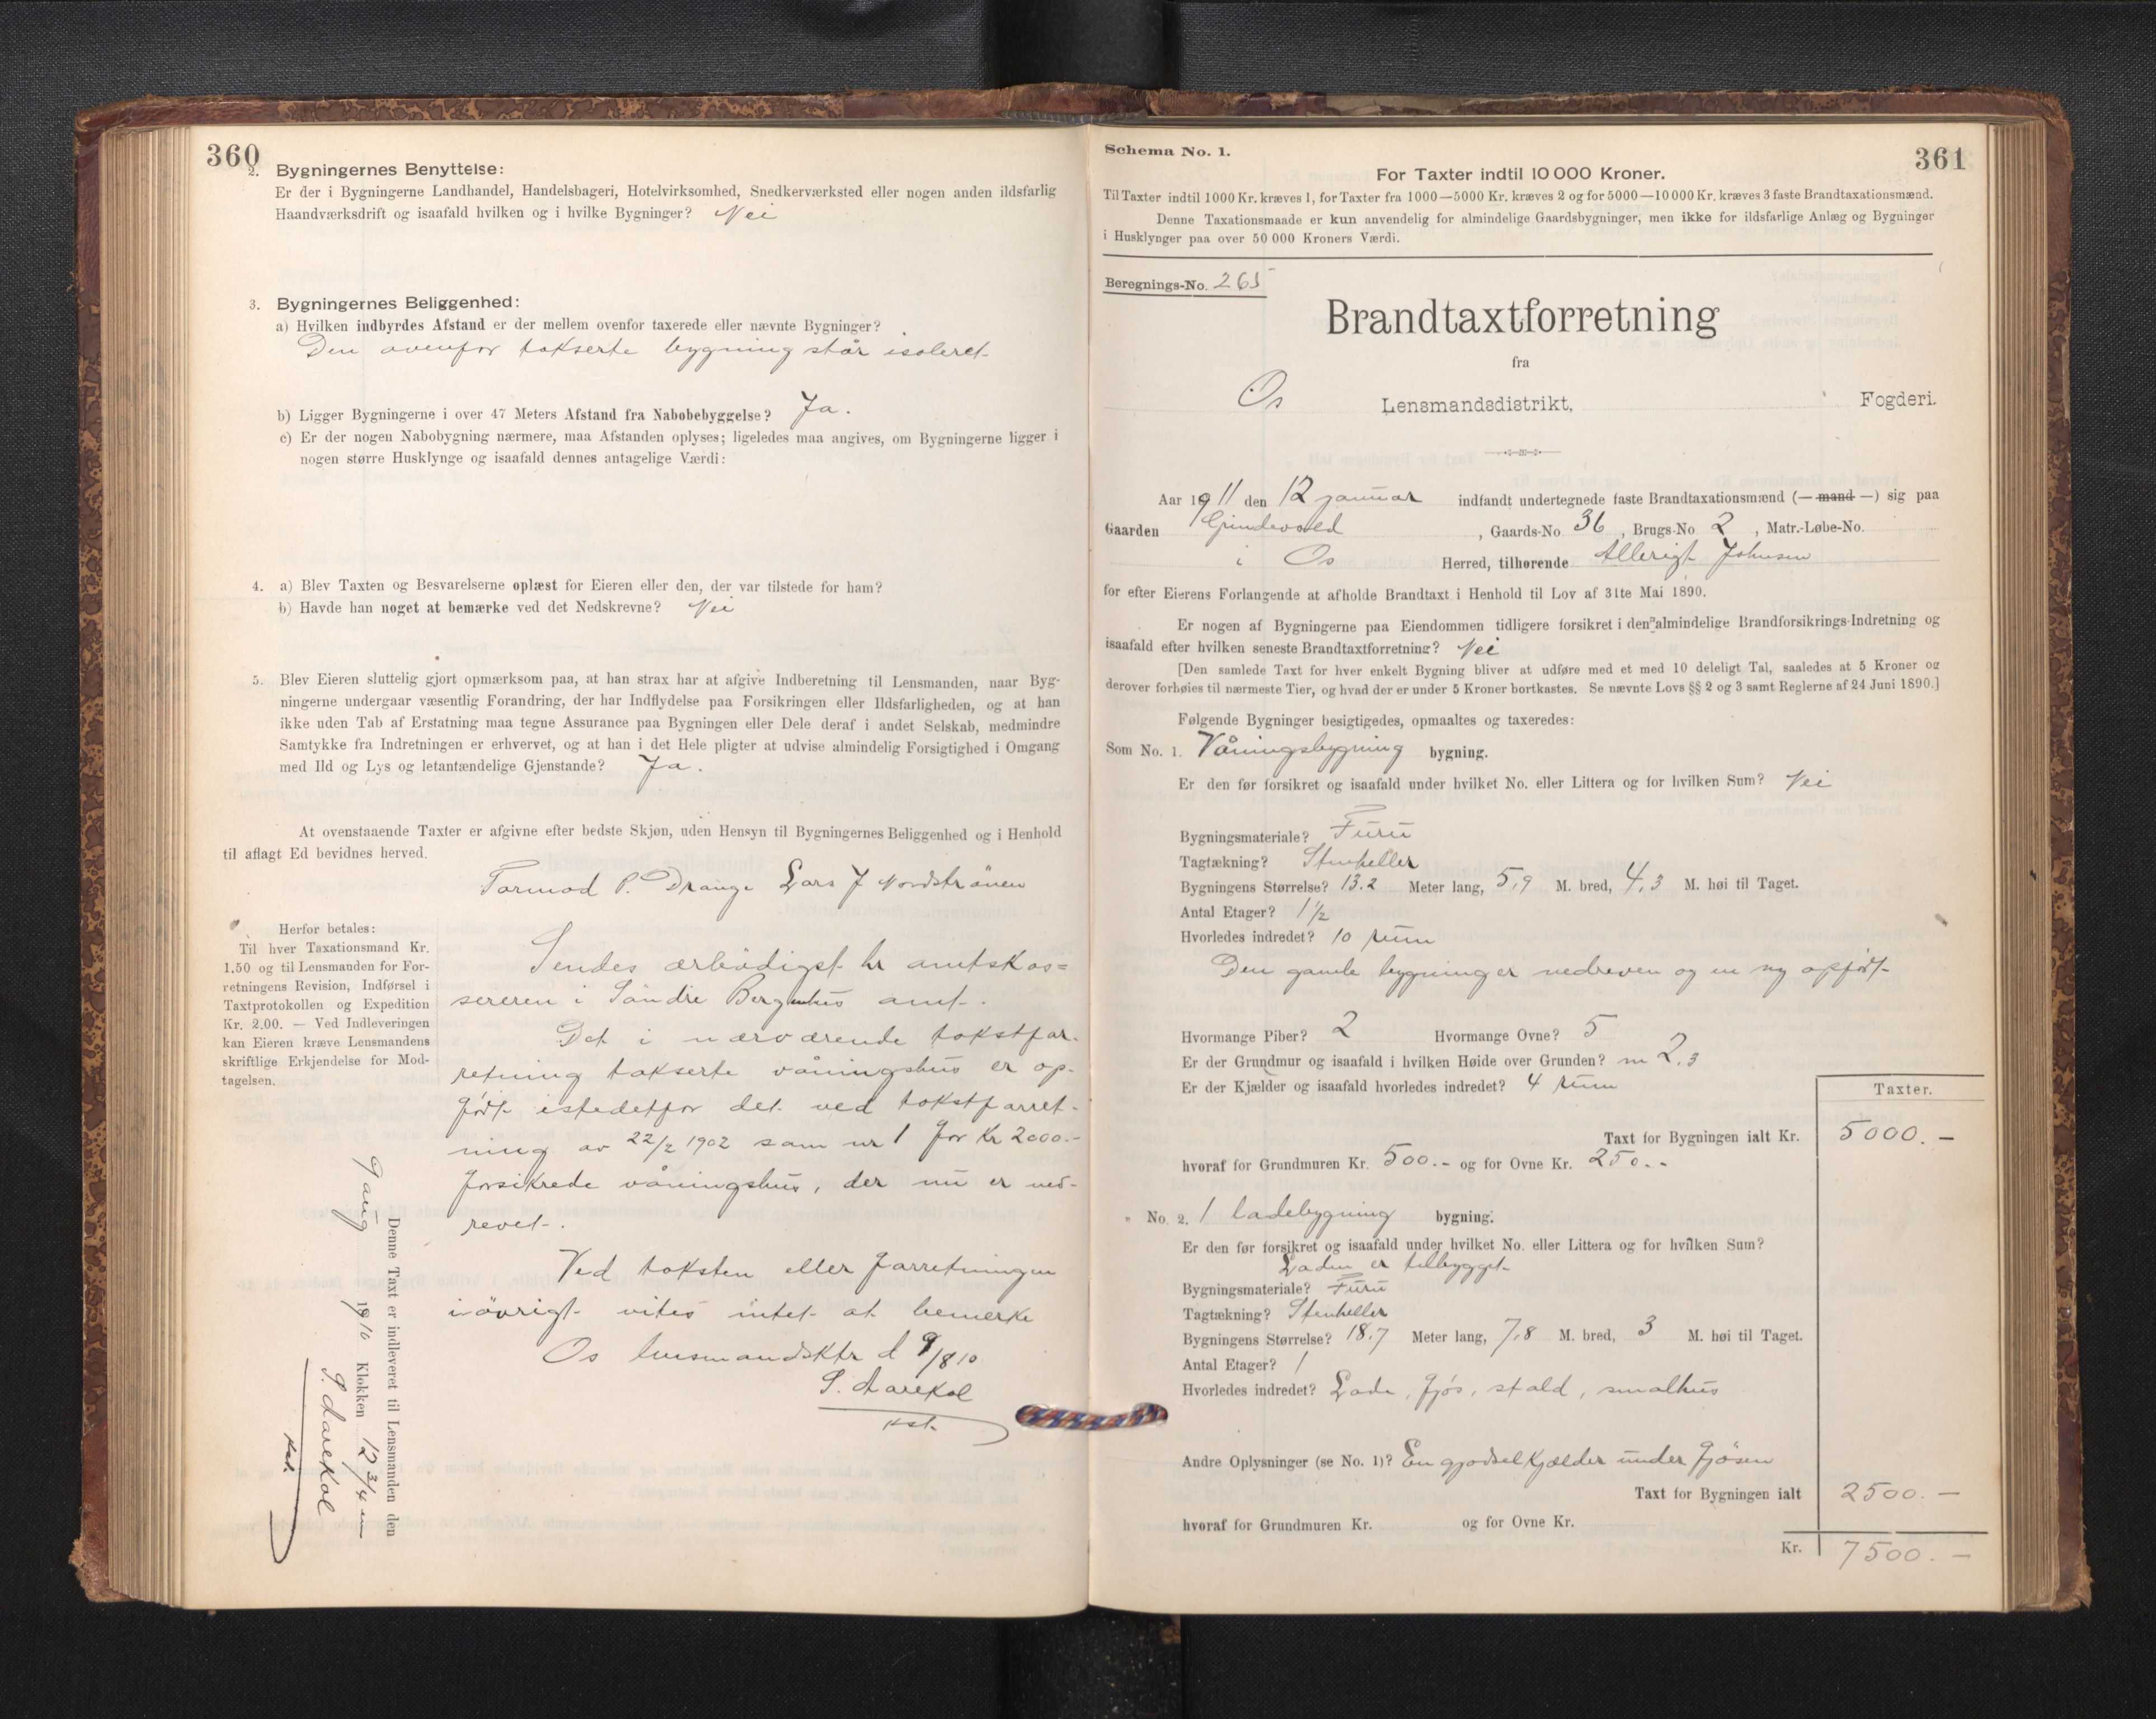 360
2. Bygningernes Benyttelse:
Er der i Bygningerne Landhandel, Handelsbageri, Hotelvirksomhed, Snedkerværksted eller nogen anden ildsfarlig
Haandværksdrift og isaafald hvilken og i hvilke Bygninger? Nei
3. Bygningernes Beliggenhed:
a) Hvilken indbyrdes Afstand er der mellem ovenfor taxerede eller nævnte Bygninger?
Den ovenfor takserte bygning står isoleret
b) Ligger Bygningerne i over 47 Meters Afstand fra Nabobebyggelse? Ja.
c) Er der nogen Nabobygning nærmere, maa Afstanden oplyses; ligeledes maa angives, om Bygningerne ligger i
nogen større Husklynge og isaafald dennes antagelige Værdi:
4. a) Blev Taxten og Besvarelserne oplæst for Eieren eller den, der var tilstede for ham?
b) Havde han noget at bemærke ved det Nedskrevne? Nei
5. Blev Eieren sluttelig gjort opmærksom paa, at han strax har at afgive Indberetning til Lensmanden, naar Byg-
ningerne undergaar væsentlig Forandring, der har Indflydelse paa Forsikringen eller Ildsfarligheden, og at han
ikke uden Tab af Erstatning maa tegne Assurance paa Bygningen eller Dele deraf i andet Selskab, medmindre
Samtykke fra Indretningen er erhvervet, og at han i det Hele pligter at udvise almindelig Forsigtighed i Omgang
med Ild og Lys og letantændelige Gjenstande? Ja.
At ovenstaaende Taxter er afgivne efter bedste Skjøn, uden Hensyn til Bygningernes Beliggenhed og i Henhold
til aflagt Ed bevidnes herved.
Tormod P. Drange Lars J Nordstrånen
Herfor betales:
Til hver Taxationsmand Kr.
1.50 og til Lensmanden for For-
retningens Revision, Indførsel i
Taxtprotokollen og Expedition
Kr. 2.00. — Ved Indleveringen
kan Eieren kræve Lensmandens
skriftlige Erkjendelse for Mod-
tagelsen.
Sendes ærbødigst hr amtskas=
sereren i Søndre Bergenhus amt.
Det i nærværende takstfor-
retning takserte våningshus er op-
ført istedetfor det ved takstforret-
ning av 22/2 1902 som nr 1 for Kr 2000.-
forsikrede våningshus, der nu er ned-
revet.
Ved taksten eller forretningen
iøvrigt vites intet at bemerke
Os lensmandsktr d 9/8 10
S. Aarekol
kst.
Denne Taxt er indleveret til Lensmanden den
9 aug 1910 Klokken 12 3/4 em
S. Aarekol
kst.
361
Schema No. 1.
For Taxter indtil 10 000 Kroner.
Til Taxter indtil 1000 Kr. kræves 1, for Taxter fra 1000—5000 Kr. kræves 2 og for 5000—10 000 Kr. kræves 3 faste Brandtaxationsmænd.
Denne Taxationsmaade er kun anvendelig for almindelige Gaardsbygninger, men ikke for ildsfarlige Anlæg og Bygninger
i Husklynger paa over 50 000 Kroners Værdi.
Beregnings-No. 265
Brandtaxtforretning
fra
Os Lensmandsdistrikt, Fogderi.
Aar 1911 den 12 januar indfandt undertegnede faste Brandtaxationsmænd (— mand —) sig paa
Gaarden Grindevold, Gaards-No 36, Brugs-No 2, Matr.-Løbe-No.
i Os Herred, tilhørende Allerigt Johnsen
for efter Eierens Forlangende at afholde Brandtaxt i Henhold til Lov af 31te Mai 1890.
Er nogen af Bygningerne paa Eiendommen tidligere forsikret i den almindelige Brandforsikrings-Indretning og
isaafald efter hvilken seneste Brandtaxtforretning? Nei
[Den samlede Taxt for hver enkelt Bygning bliver at udføre med et med 10 deleligt Tal, saaledes at 5 Kroner og
derover forhøies til nærmeste Tier, og hvad der er under 5 Kroner bortkastes. Se nævnte Lovs §§ 2 og 3 samt Reglerne af 24 Juni 1890.]
Følgende Bygninger besigtigedes, opmaaltes og taxeredes:
Som No. 1. Våningsbygning bygning.
Er den før forsikret og isaafald under hvilket No. eller Littera og for hvilken Sum? Nei
Bygningsmateriale? Furu
Tagtækning? Stenheller
Bygningens Størrelse? 13.2 Meter lang, 5,9 M. bred, 4,3 M. høi til Taget.
Antal Etager? 1 1/2
Hvorledes indredet? 10 rum
Den gamle bygning er nedreven og en ny opført
Hvormange Piber? 2 Hvormange Ovne? 5
Er der Grundmur og isaafald i hvilken Høide over Grunden? m 2.3
Er der Kjælder og isaafald hvorledes indredet? 4 rum
Taxter.
Taxt for Bygningen ialt Kr. 5000. —
hvoraf for Grundmuren Kr. 500.- og for Ovne Kr. 250.-
No. 2. 1 ladebygning bygning.
Er den før forsikret og isaafald under hvilket No. eller Littera og for hvilken Sum?
Laden er tilbygget
Bygningsmateriale? Furu
Tagtækning? Stenheller
Bygningens Størrelse? 18.7 Meter lang, 7,8 M. bred, 3 M. høi til Taget.
Antal Etager? 1
Hvorledes indredet? Lade, fjøs, stald, smalhus
Andre Oplysninger (se No. 1)? En gjødselkjælder under fjøsen
Taxt for Bygningen ialt 2500. —
hvoraf for Grundmuren Kr. og for Ovne Kr.
Kr. 7500. —